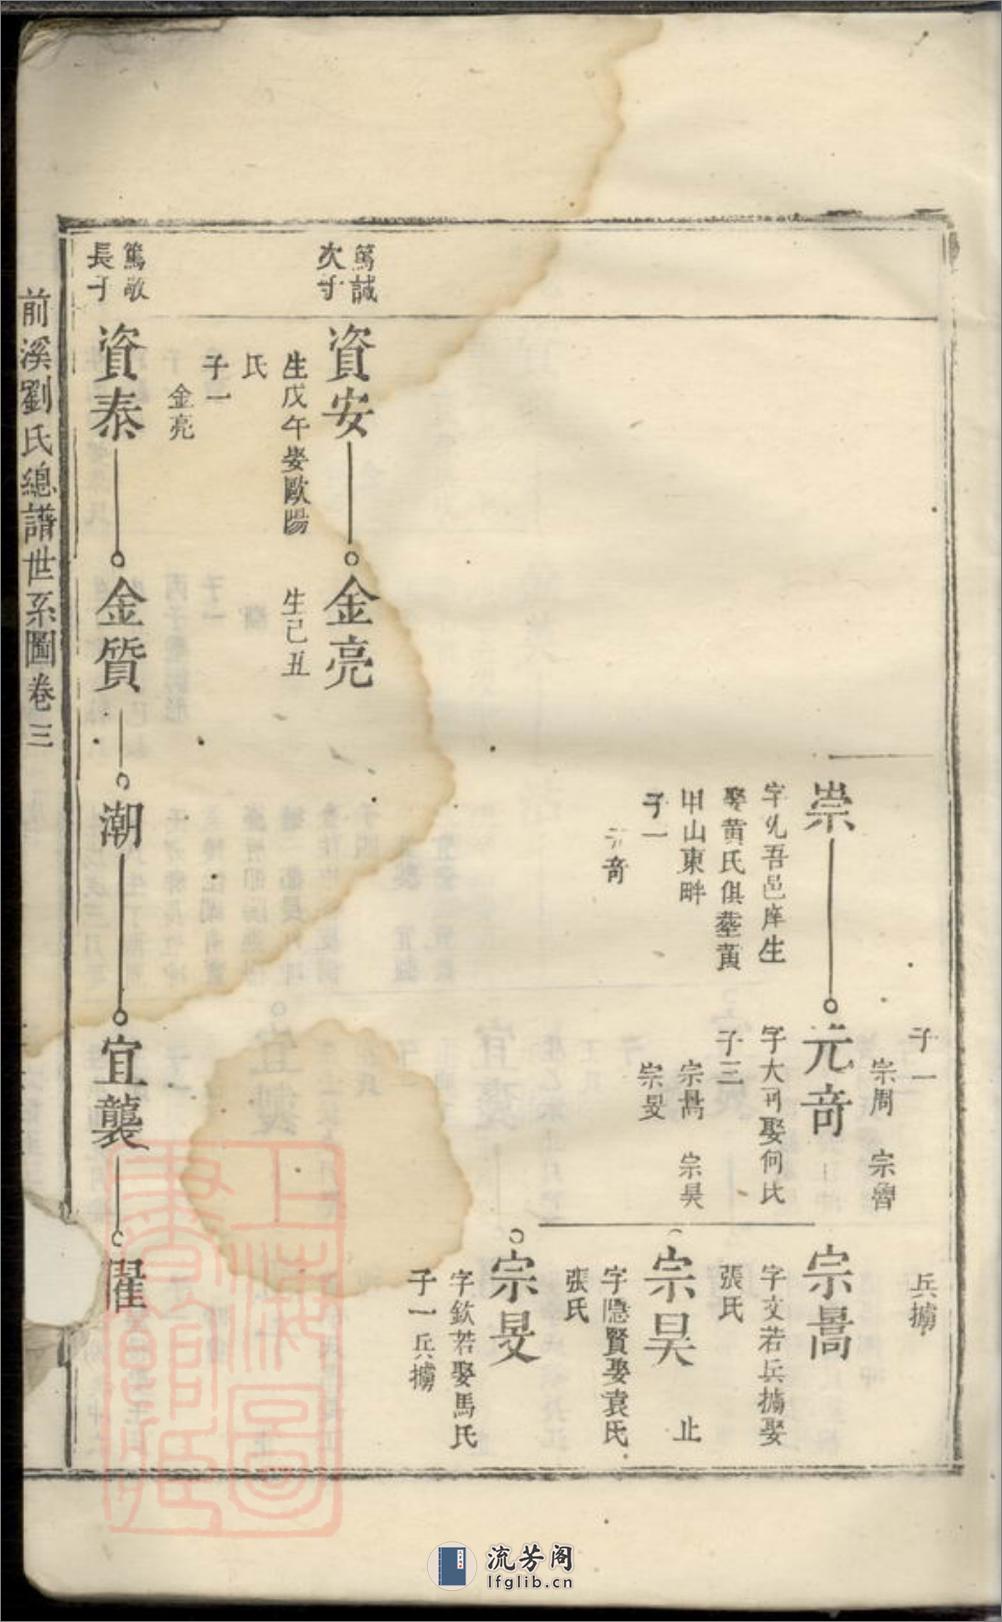 子一
宗周　宗魯
兵擄
崇
字允吾邑庠生
娶黃氏俱塟黃
甲山東畔
子一
元奇
元奇
字大司娶何氏
子三
宗暠　宗昊
宗旻
宗暠
字文若兵擄娶
張氏
宗昊　止
字隱賢娶袁氏
張氏
宗旻
字欽若娶馬氏
子一兵擄
篤誠
次子
資安
生戊午娶歐陽
氏
子一
金亮
金亮
生己丑
篤敬
長子
資泰
金質
潮
宜襲
前溪劉氏總譜世系圖卷三
上海圖書館藏
流芳阁
lfglib.cn